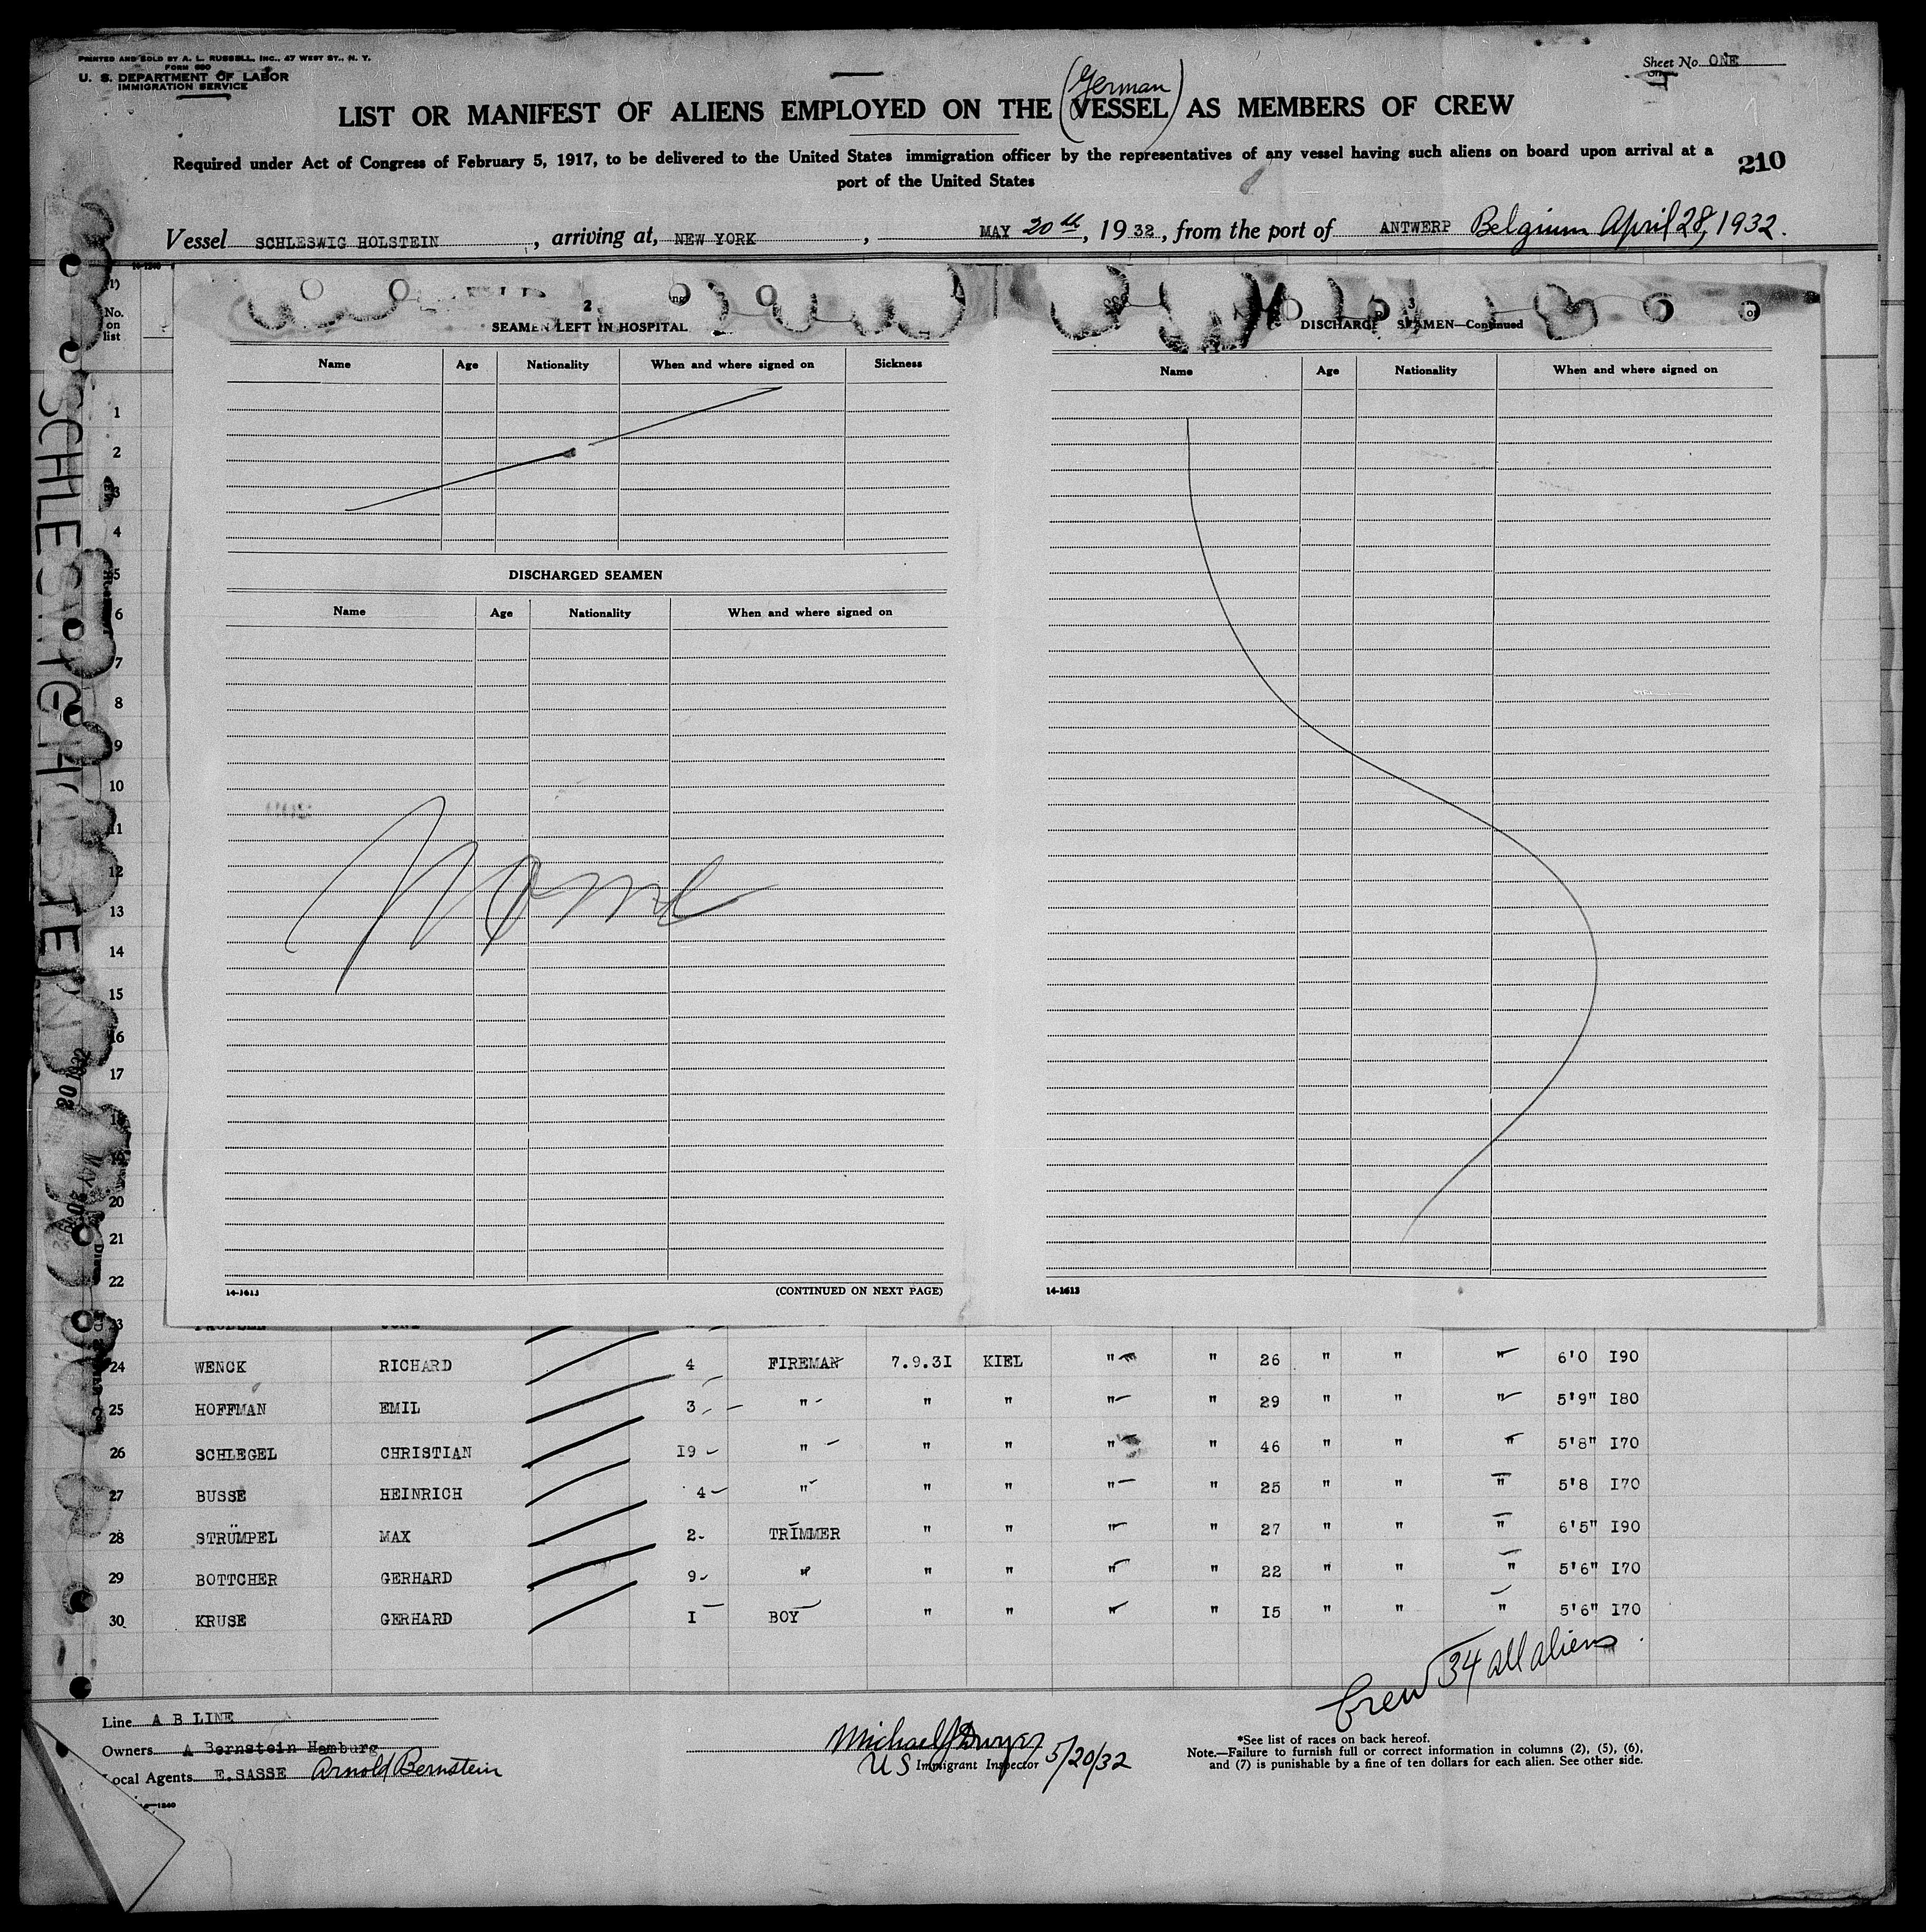 PRINTED AND SOLD BY A. L. RUSSELL, INC., 47 WEST ST., N. Y.
FORM 680
U. S. DEPARTMENT OF LABOR
IMMIGRATION SERVICE
Sheet No. ONE
German
LIST OR MANIFEST OF ALIENS EMPLOYED ON THE (VESSEL) AS MEMBERS OF CREW
Required under Act of Congress of February 5, 1917, to be delivered to the United States immigration officer by the representatives of any vessel having such aliens on board upon arrival at a
port of the United States
210
Vessel SCHLESWIG HOLSTEIN, arriving at, NEW YORK, MAY 20th, 1932, from the port of ANTWERP Belgium April 28, 1932.
(1)
No. on list
2
SEAMEN LEFT IN HOSPITAL
Name Age Nationality When and where signed on Sickness
DISCHARGED SEAMEN
Name Age Nationality When and where signed on
None
14-1613 (CONTINUED ON NEXT PAGE)
3
SEAMEN—Continued
Name Age Nationality When and where signed on
14-1613
1
2
3
4
5
6
7
8
9
10
11
12
13
14
15
16
17
18
19
20
21
22
23
24 WENCK RICHARD 4 FIREMAN 7.9.31 KIEL " " 26 " " " 6'0 190
25 HOFFMAN EMIL 3 " " " " " 29 " " " 5'9" 180
26 SCHLEGEL CHRISTIAN 19 " " " " " 46 " " " 5'8" 170
27 BUSSE HEINRICH 4 " " " " " 25 " " " 5'8 170
28 STRÜMPEL MAX 2 TRIMMER " " " " 27 " " " 6'5" 190
29 BOTTCHER GERHARD 9 " " " " " 22 " " " 5'6" 170
30 KRUSE GERHARD 1 BOY " " " " 15 " " " 5'6" 170
Crew 34 all aliens
Line A B LINE
Owners A Bernstein Hamburg
Local Agents E.SASSE Arnold Bernstein
Michael J Dwyer
US Immigrant Inspector 5/20/32
*See list of races on back hereof.
Note.—Failure to furnish full or correct information in columns (2), (5), (6),
and (7) is punishable by a fine of ten dollars for each alien. See other side.